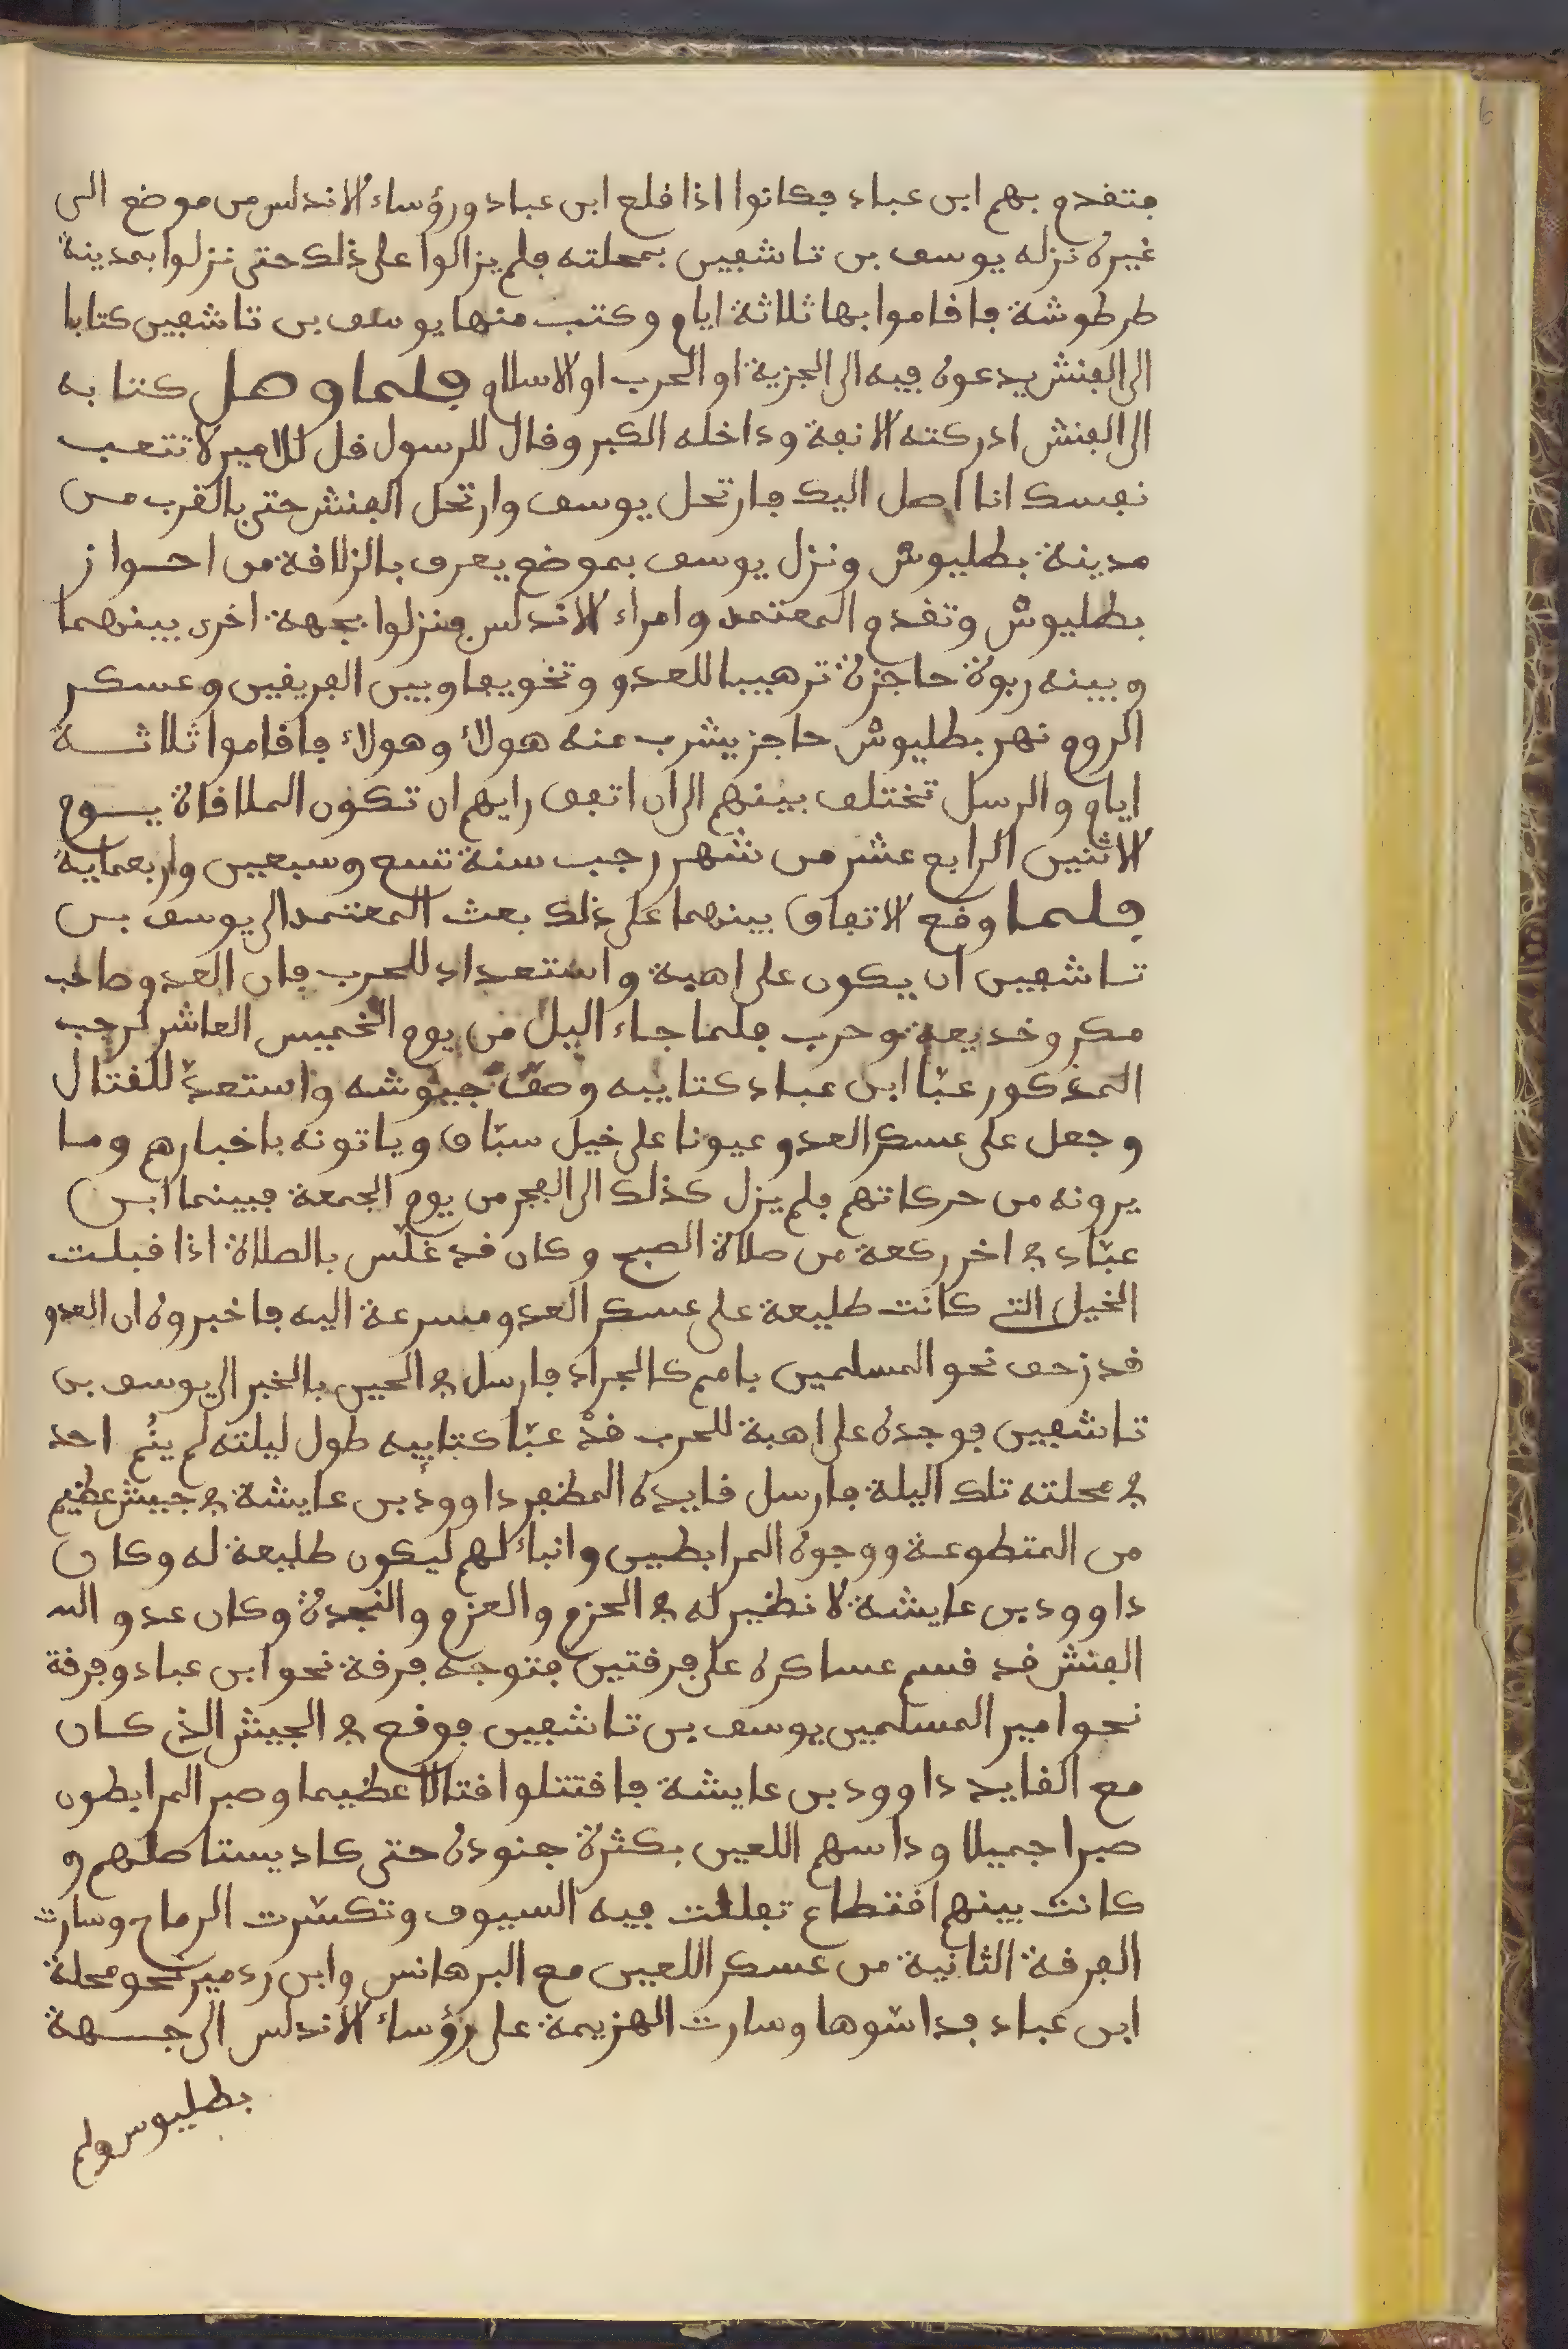 فتقدم بهم ابن عباد فكانوا اذا قلع ابن عباد ورؤساء الاندلس من موضع الى
غيره نزله يوسف بن تاشفين بمحلته فلم يزالوا على ذلك حتى نزلوا بمدينة
طرطوشة فاقاموا بها ثلاثة ايام وكتب منها يوسف بن تاشفين كتابا
الى الفنش يدعوه فيه الى الجزية او الحرب او الاسلام فلما وصل كتابه
الى الفنش ادركته الانفة وداخله الكبر وقال للرسول قل للامير لا تتعب
نفسك انا اصل اليك فارتحل يوسف وارتحل الفنش حتى بالقرب من
مدينة بطليوش ونزل يوسف بموضع يعرف بالزلاقة من احواز
بطليوش وتقدم المعتمد وامراء الاندلس فنزلوا بجهة اخرى بينهما
وبينه ربوة حاجزة ترهيبا للعدو وتخويفا وبين الفريقين وعسكر
الروم نهر بطليوش حاجز يشرب منه هولاء وهولاء فاقاموا ثلاثة
ايام والرسل تختلف بينهم الى ان اتفق رايهم ان تكون الملاقاة يوم
الاثنين الرابع عشر من شهر رجب سنة تسع وسبعين واربعماية
فلما وقع الاتفاق بينهما على ذلك بعث المعتمد الى يوسف بن
تاشفين ان يكون على اهبة واستعداد للحرب فان العدو صاحب
مكر وخديعة وحرب فلما جاء اليل من يوم الخميس العاشر لرجب
المذكور عبّا ابن عباد كتايبه وصفّ جيوشه واستعدّ للقتال
وجعل على عسكر العدو عيونا على خيل سبّاق وياتونه باخبارهم وما
يرونه من حركاتهم فلم يزل كذلك الى الفجر من يوم الجمعة فبينما ابن
عبّاد في اخر ركعة من صلاة الصبح وكان قد غلّس بالصلاة اذا قبلت
الخيل التي كانت طليعة على عسكر العدو مسرعة اليه فاخبروه ان العدو
قد زحف نحو المسلمين بامم كالجراد فارسل في الحين بالخبر الى يوسف بن
تاشفين فوجده على اهبة للحرب قد عبّا كتايبه طول ليلته لم ينم احد
في محلته تلك اليلة فارسل قايده المظفر داوود بن عايشة في جيش عظيم
من المتطوعة ووجوه المرابطين وانباءلهم ليكون طليعة له وكان
داوود بن عايشة لا نظير له في الحزم والعزم والنجدة وكان عدو الله
الفنش قد قسم عساكره على فرقتين فتوجه فرقة نحو ابن عباد وفرقة
نحو امير المسلمين يوسف بن تاشفين فوقع في الجيش الذي كان
مع القايد داوود بن عايشة فاقتتلوا قتالا عظيما وصبر المرابطون
صبرا جميلا وداسهم اللعين بكثرة جنوده حتى كاد يستاصلهم و
كانت بينهم اقتطاع تفللت فيه السيوف وتكسّرت الرماح وسارت
الفرقة الثانية من عسكر اللعين مع البرهانس وابن ردمير نحو محلة
ابن عباد فداسّوها وسارت الهزيمة على رؤساء الاندلس الى جهة
بطليوس ولم